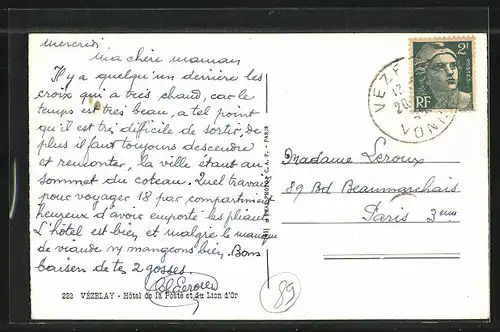 mercredi
ma chère maman
Il y a quelqu'un derrière les
croix qui a très chaud, car le
temps est très beau, a tel point
qu'il est très difficile de sortir, de
plus il faut toujours descendre
et remonter, la ville étant au
sommet du coteau. Quel travail
pour voyager 18 par compartiment
heureux d'avoir emporté les pliants
L'hôtel est bien et malgré le manque
de viande on y mangeons bien. Bons
baisers de tes 2 gosses.
222 VÉZELAY - Hôtel de la Poste et du Lion d'Or
C. A. P. - PARIS
2F
POSTES
RF
VÉZE
YONNE
Madame Leroux
89 Bd Beaumarchais
Paris 3eme
89